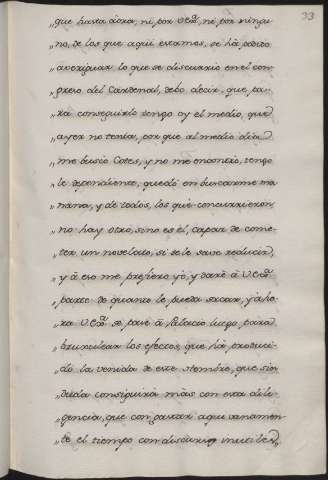 33
„que hasta aora, ni por V.Exª, ni por ningu-
„no, de los que aqui estamos, se há podido
„averiguar lo que se discurrió en el con-
„greso del Cardenal, debo decir, que pa-
„ra conseguirlo tengo oy el medio, que
„ayer no tenia, por que al medio dia
„me buscó Cotes, y no me encontró, tengo
„le dependiente, quedó en buscarme ma-
„ñana, y de todos, los que concurrieron
„no hay otro, sino es él, capaz de come-
„ter un novelato, si se le save reducir,
„y á eso me prefiero yó, y daré á V.Exª
„parte de quanto le pueda sacar, y aho-
„ra V.Exª se vaya á Palacio luego, para
„brujulear los efectos, que há produci-
„do la venida de este hombre, que sin
„duda conseguirá más con esta dili-
„gencia, que con gastar aqui vanamen-
„te el tiempo con discursos inutiles,